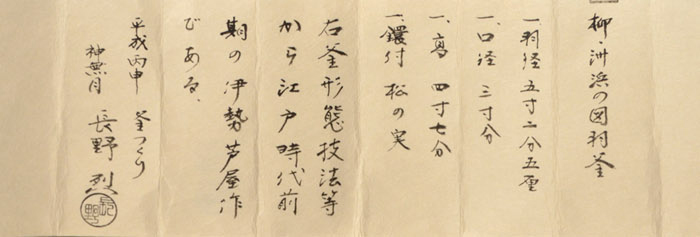 柳・洲浜の図羽釜
一羽径 五寸二分五厘
一、口径 三寸分
一、高 四寸七分
一、鐶付 松の実
右釜形態技法等
から江戸時代前
期の伊勢芦屋作
である、
平成丙申 釜つくり
神無月 長野 烈
長野